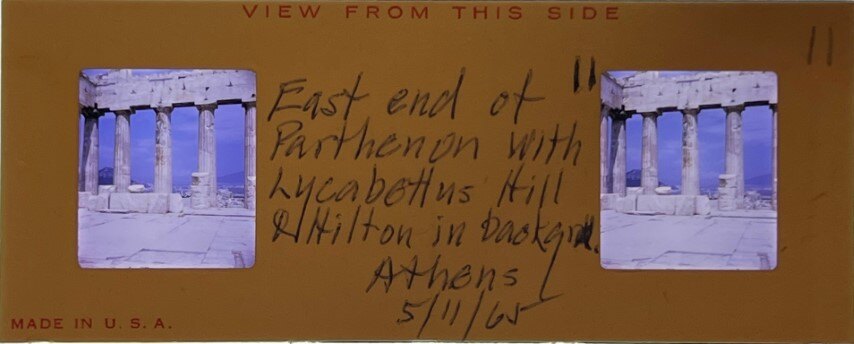 VIEW FROM THIS SIDE
11
East end of "
Parthenon with
Lycabettus Hill
& Hilton in backgr.
Athens
5/11/65
MADE IN U. S. A.